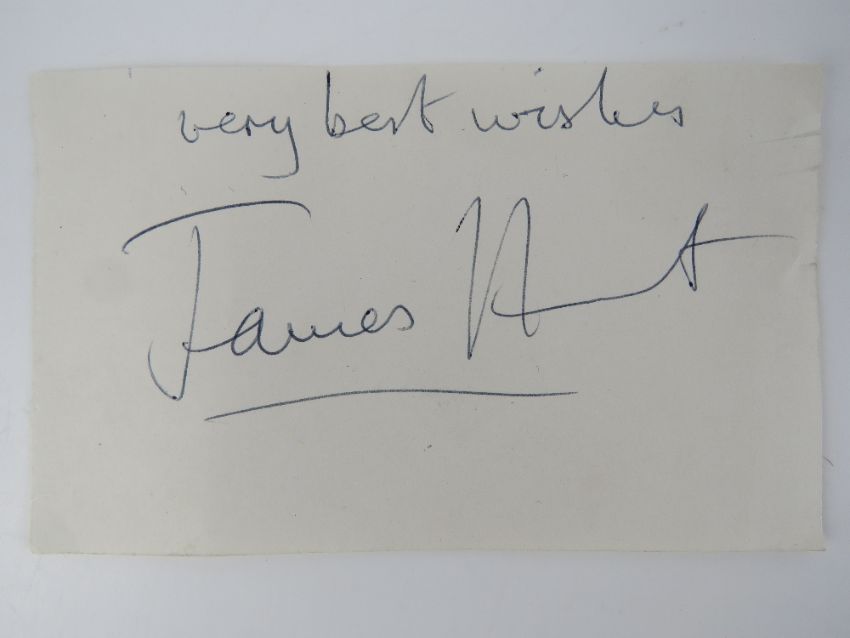 very best wishes
James Hunt